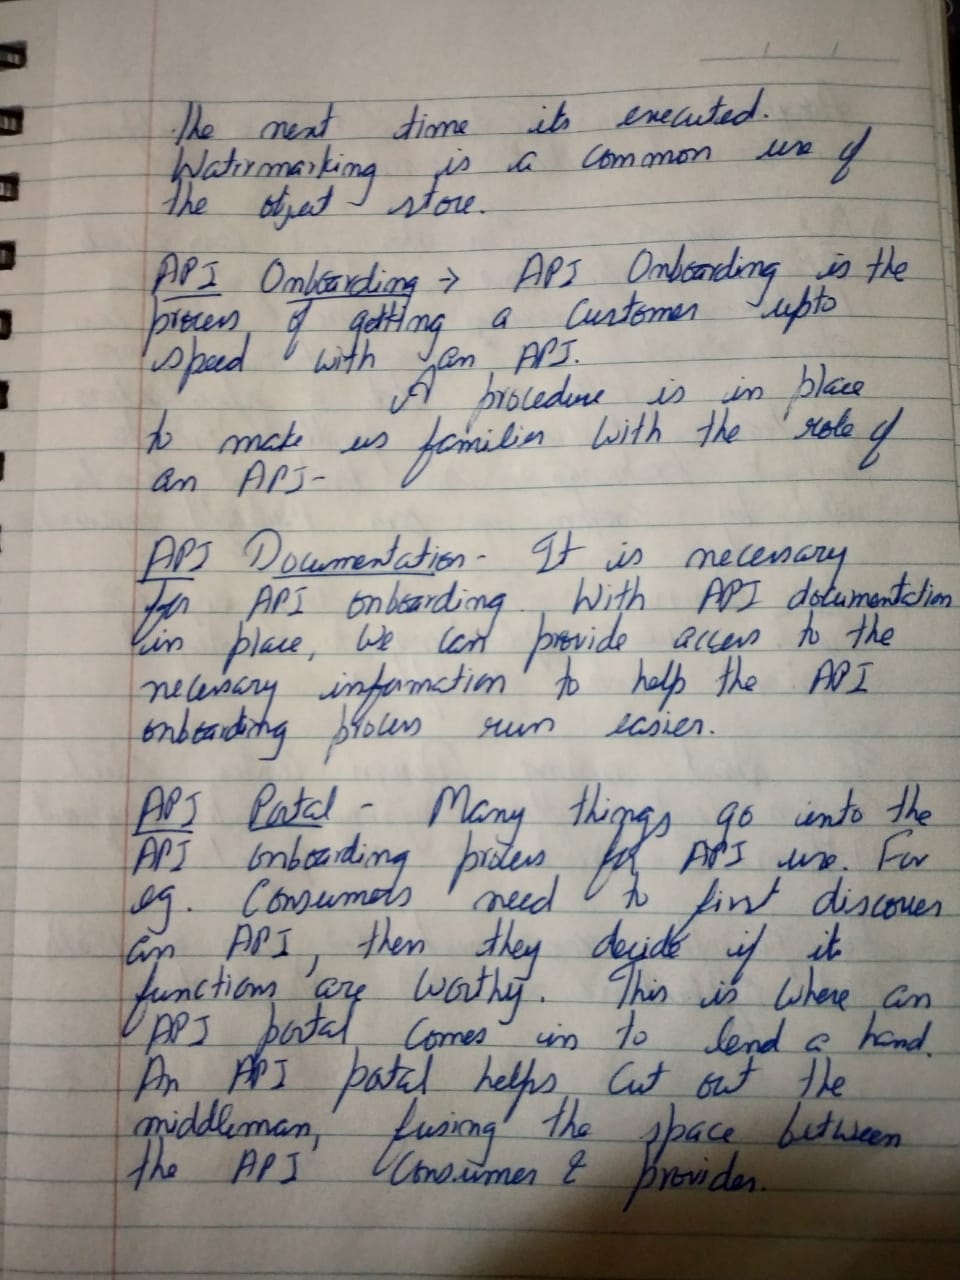 the next time its executed.
Watermarking is a common use of
the object store.
API Onboarding → API Onboarding is the
process of getting a customer upto
speed with an API.
A procedure is in place
to make us familier with the role of
an API-
API Documentation - It is necessary
for API onboarding. With API documentation
in place, we can provide access to the
necessary information to help the API
onboarding process run easier.
API Portal - Many things go into the
API onboarding process for API use. For
eg. Consumers need to first discover
an API, then they decide if its
functions are worthy. This is where an
API portal comes in to lend a hand.
An API portal helps cut out the
middleman, fusing the space between
the API Consumer & provider.